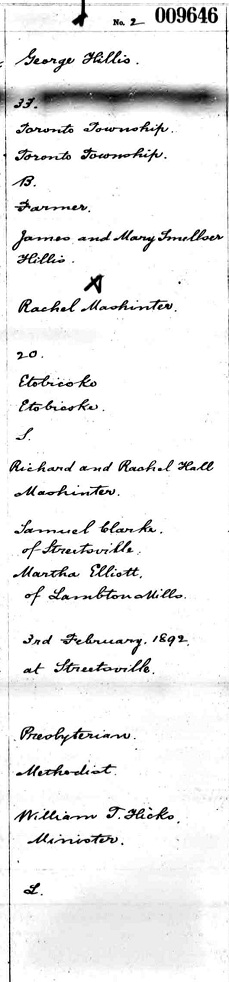 No. 2 009646
George Hillis.
33.
Toronto Township.
Toronto Township.
B.
Farmer.
James and Mary Smellser
Hillis.
X
Rachel Mashinter.
20.
Etobicoke
Etobicoke.
S.
Richard and Rachel Hall
Mashinter.
Samuel Clarke.
of Streetsville.
Martha Elliott.
of Lambton Mills.
3rd February. 1892.
at Streetsville.
Presbyterian.
Methodist.
William T. Hicks.
Minister.
L.